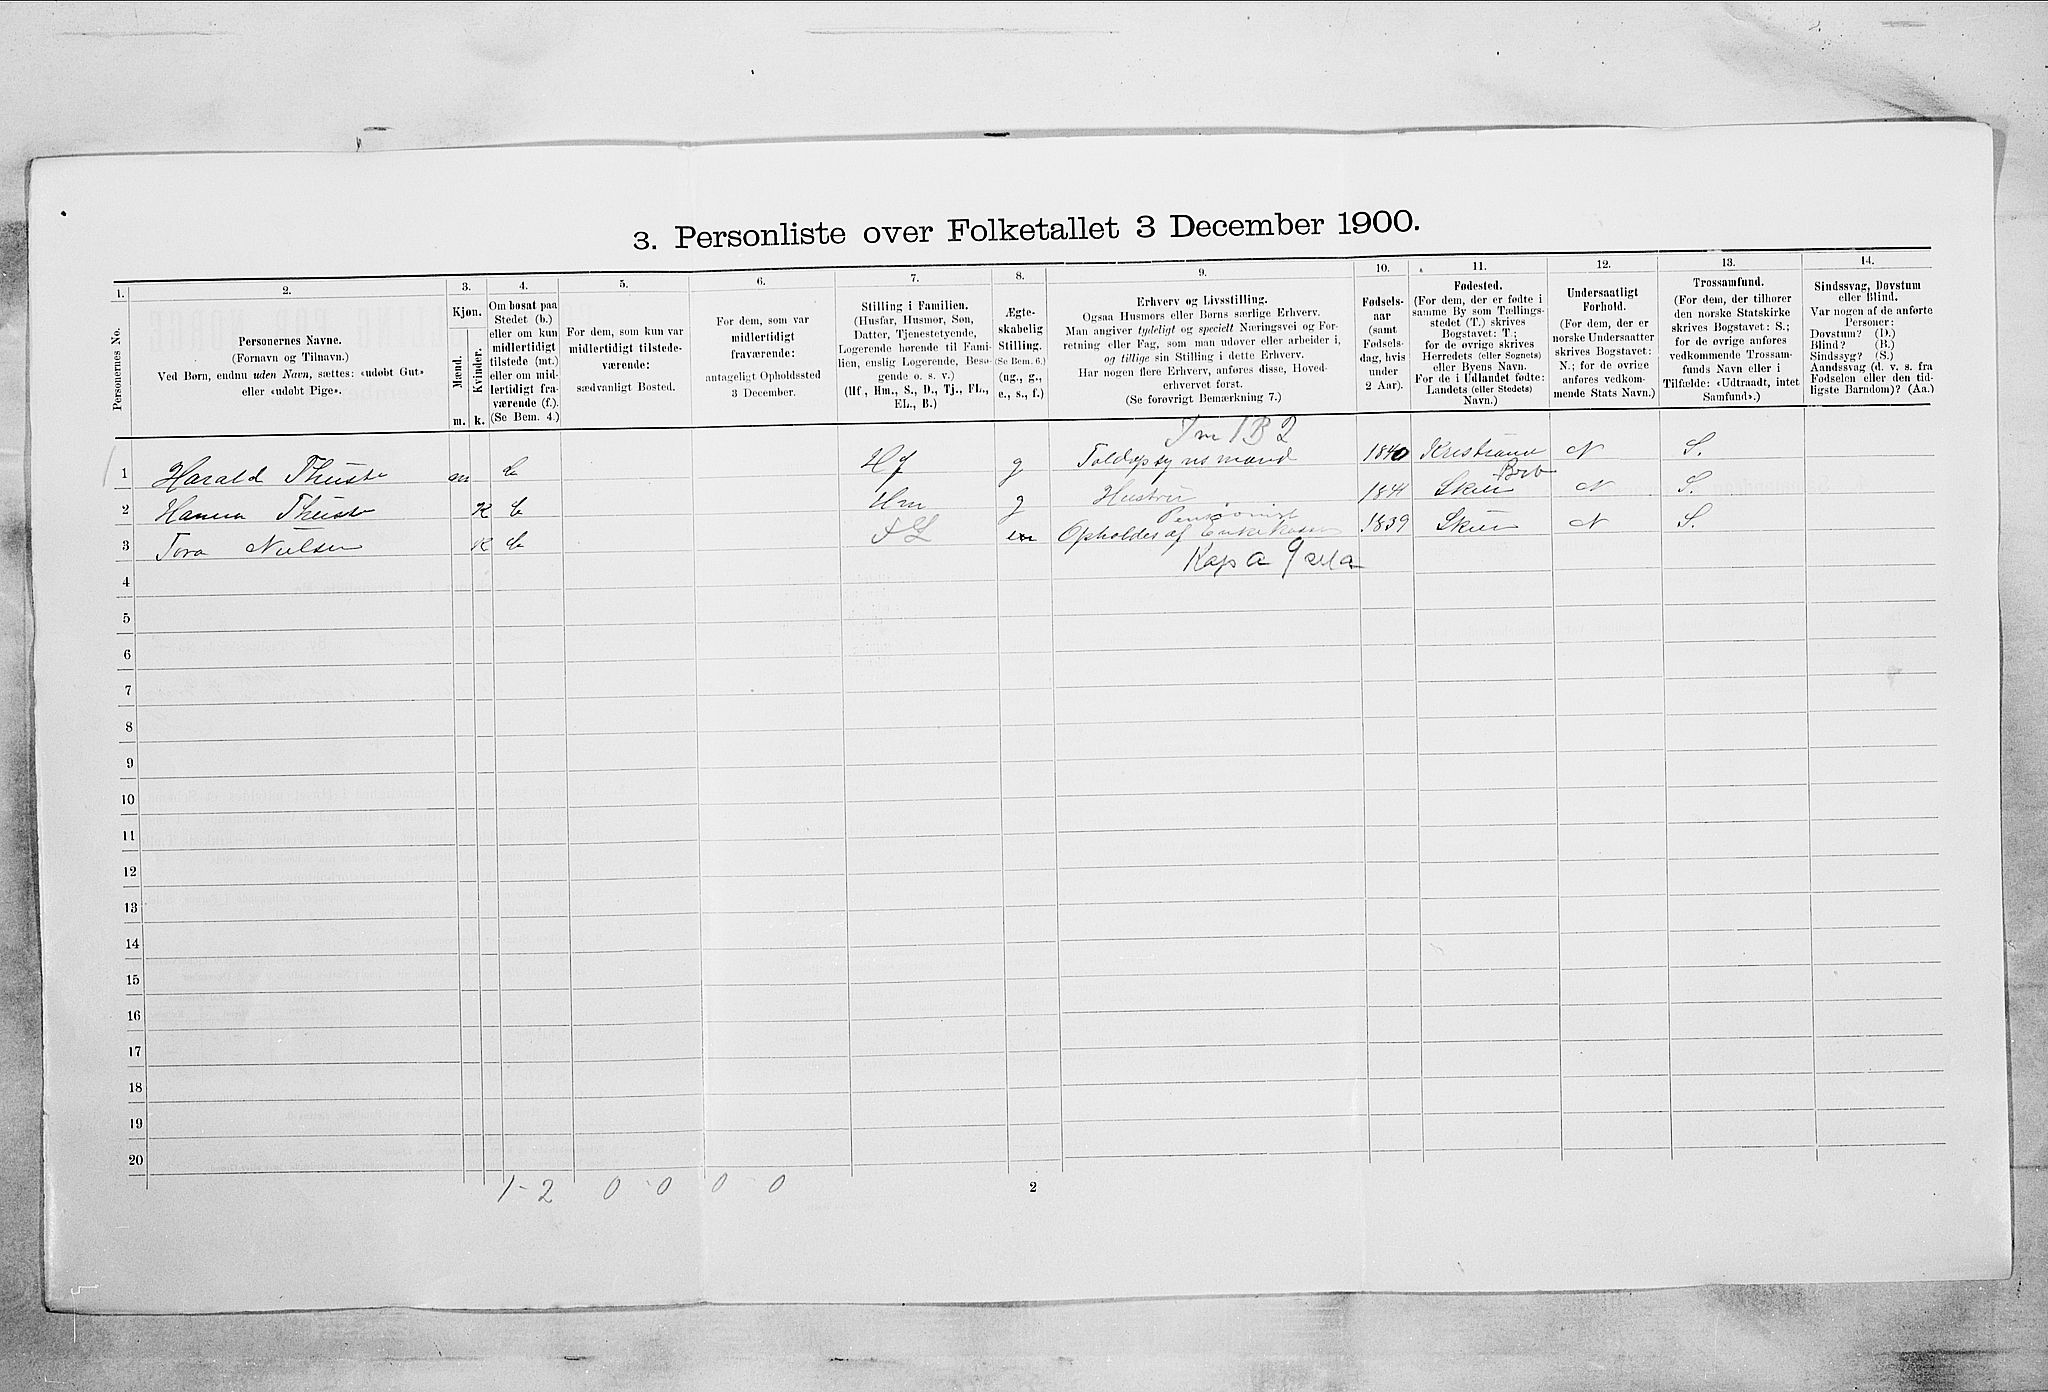 3. Personliste over Folketallet 3 December 1900.
1. 2. 3. 4. 5. 6. 7. 8. 9. 10. 11. 12. 13. 14.
Personernes No.
Personernes Navne.
(Fornavn og Tilnavn.)
Ved Børn, endnu uden Navn, sættes: «udøbt Gut»
eller «udøbt Pige».
Kjøn.
Mænd.
Kvinder.
m. k.
Om bosat paa
Stedet (b.)
eller om kun
midlertidigt
tilstede (mt.)
eller om mid-
lertidigt fra-
værende (f.).
(Se Bem. 4.)
For dem, som kun var
midlertidigt tilstede-
værende:
sædvanligt Bosted.
For dem, som var
midlertidigt
fraværende:
antageligt Opholdssted
3 December.
Stilling i Familien.
(Husfar, Husmor, Søn,
Datter, Tjenestetyende,
Logerende hørende til Fami-
lien, enslig Logerende, Besø-
gende o. s. v.)
(Hf., Hm., S., D., Tj., FL.,
EL., B.)
Ægte-
skabelig
Stilling.
(Se Bem. 6.)
(ug., g.,
e., s., f.)
Erhverv og Livsstilling.
Ogsaa Husmors eller Børns særlige Erhverv.
Man angiver tydeligt og specielt Næringsvei og For-
retning eller Fag, som man udøver eller arbeider i,
og tillige sin Stilling i dette Erhverv.
Har nogen flere Erhverv, anføres disse, Hoved-
erhvervet først.
(Se forøvrigt Bemærkning 7.)
Fødsels-
aar
(samt
Fødsels-
dag, hvis
under
2 Aar).
Fødested.
(For dem, der er fødte i
samme By som Tællings-
stedet (T.) skrives
Bogstavet: T.;
for de øvrige skrives
Herredets (eller Sognets)
eller Byens Navn.
For de i Udlandet fødte:
Landets (eller Stedets)
Navn.)
Undersaatligt
Forhold.
(For dem, der er
norske Undersaatter
skrives Bogstavet:
N.; for de øvrige
anføres vedkom-
mende Stats Navn.)
Trossamfund.
(For dem, der tilhører
den norske Statskirke
skrives Bogstavet: S.;
for de øvrige anføres
vedkommende Trossam-
funds Navn eller i
Tilfælde: «Udtraadt, intet
Samfund».)
Sindssvag, Døvstum
eller Blind.
Var nogen af de anførte
Personer:
Døvstum? (D.)
Blind? (B.)
Sindssyg? (S.)
Aandssvag (d. v. s. fra
Fødselen eller den tid-
ligste Barndom)? (Aa.)
1 Harald Thuste m b Hf g Toldopsynsmand 1840 N S.
2 Hanna Thuste K b Hm g Hustru 1841 Skien N S.
Pensionist
3 Tora Nielsen K b FL e Opholdes af Enkekasse 1839 Skien N S.
4
5
6
7
8
9
10
11
12
13
14
15
16
17
18
19
20
1-2 0-0 0-0 2